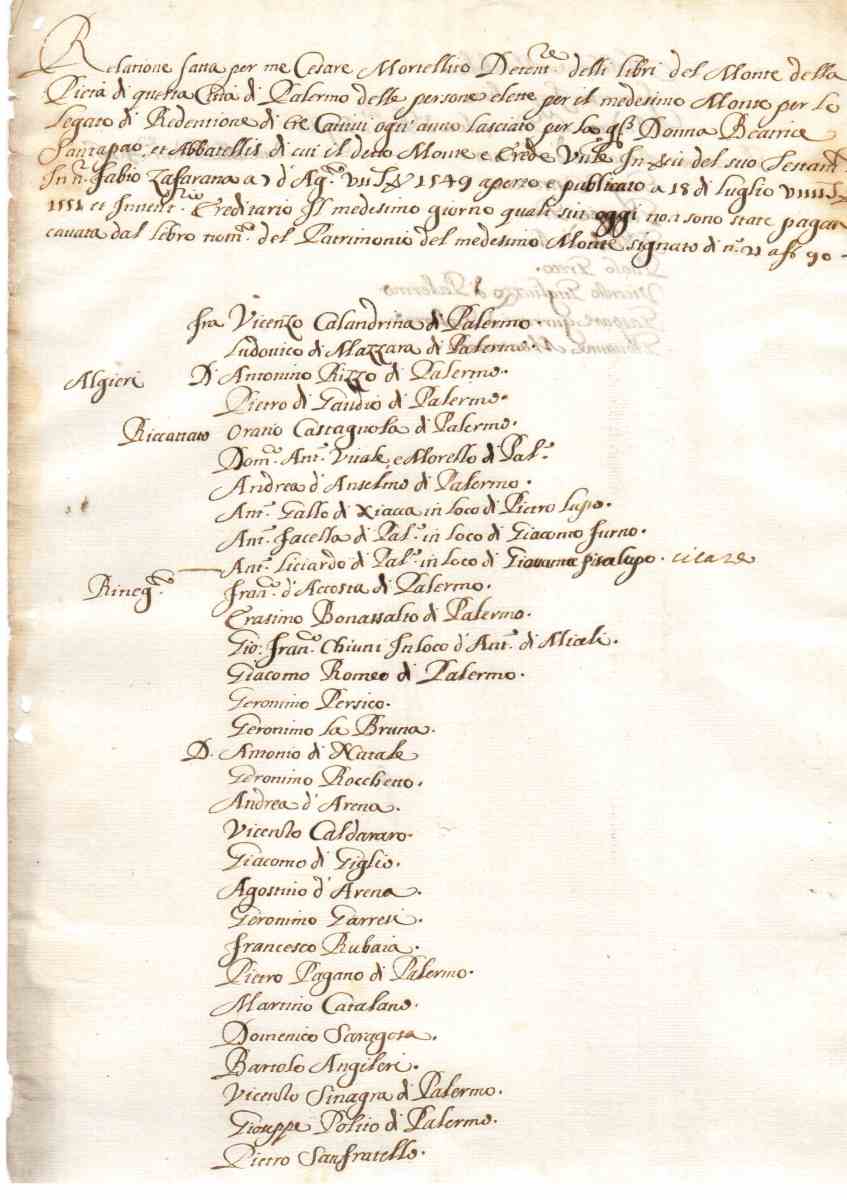 Relatione fatta per me Cesare Mortellito Detent.re delli libri del Monte della
Pietà di questa Città di Palermo delle persone elette per il medesimo Monte per lo
Legato di Redentione di tre Cattivi ogn'anno lasciato per la q.m Donna Beatrice
Santapao, et Abbatellis di cui il detto Monte e Erede Un.le In del suo Testam.
In n. Fabio Zafarana a 7 d'Ag. VII 1549 aperto e publicato a 18 di luglio VIIII
1551 et Invent.rio Ereditario Il medesimo giorno quali sin oggi non sono state pagat
cavata dal libro nom. del Patrimonio del medesimo Monte signato di n. 21 a f. 90 -
fra Vicenzo Calandrina di Palermo.
Ludovico di Mazzara di Palermo.
Algieri D. Antonino Rizzo di Palermo.
Pietro di Gaudio di Palermo.
Riccattato Oratio Castagnola di Palermo.
Dom.co Ant. Vitale, e Morello di Pal.
Andrea d'Anselmo di Palermo.
Ant. Gallo di Xiacca in loco di Pietro Lupo.
Ant. Facella di Pal. in loco di Giacomo Furno.
Ant. Liciardo di Pal. in loco di Giovanne Pisalupo. citare
Rineg.to Fran.co d'Accosta di Palermo.
Erasimo Bonassalto di Palermo.
Gio: Fran.co Chiuni In loco d'Ant. di Miceli.
Giacomo Romeo di Palermo.
Geronimo Persico.
Geronimo la Bruna.
D. Antonio di Natale
Geronimo Rocchetto.
Andrea d'Arena.
Vicenso Caldararo.
Giacomo di Giglio.
Agostino d'Arena.
Geronimo Garresi.
Francesco Rubaia.
Pietro Pagano di Palermo.
Martino Catalano.
Domenico Saragosa.
Bartolo Angileri.
Vicenso Sinagra di Palermo.
Gioseppe Polito di Palermo.
Pietro Sanfratello.